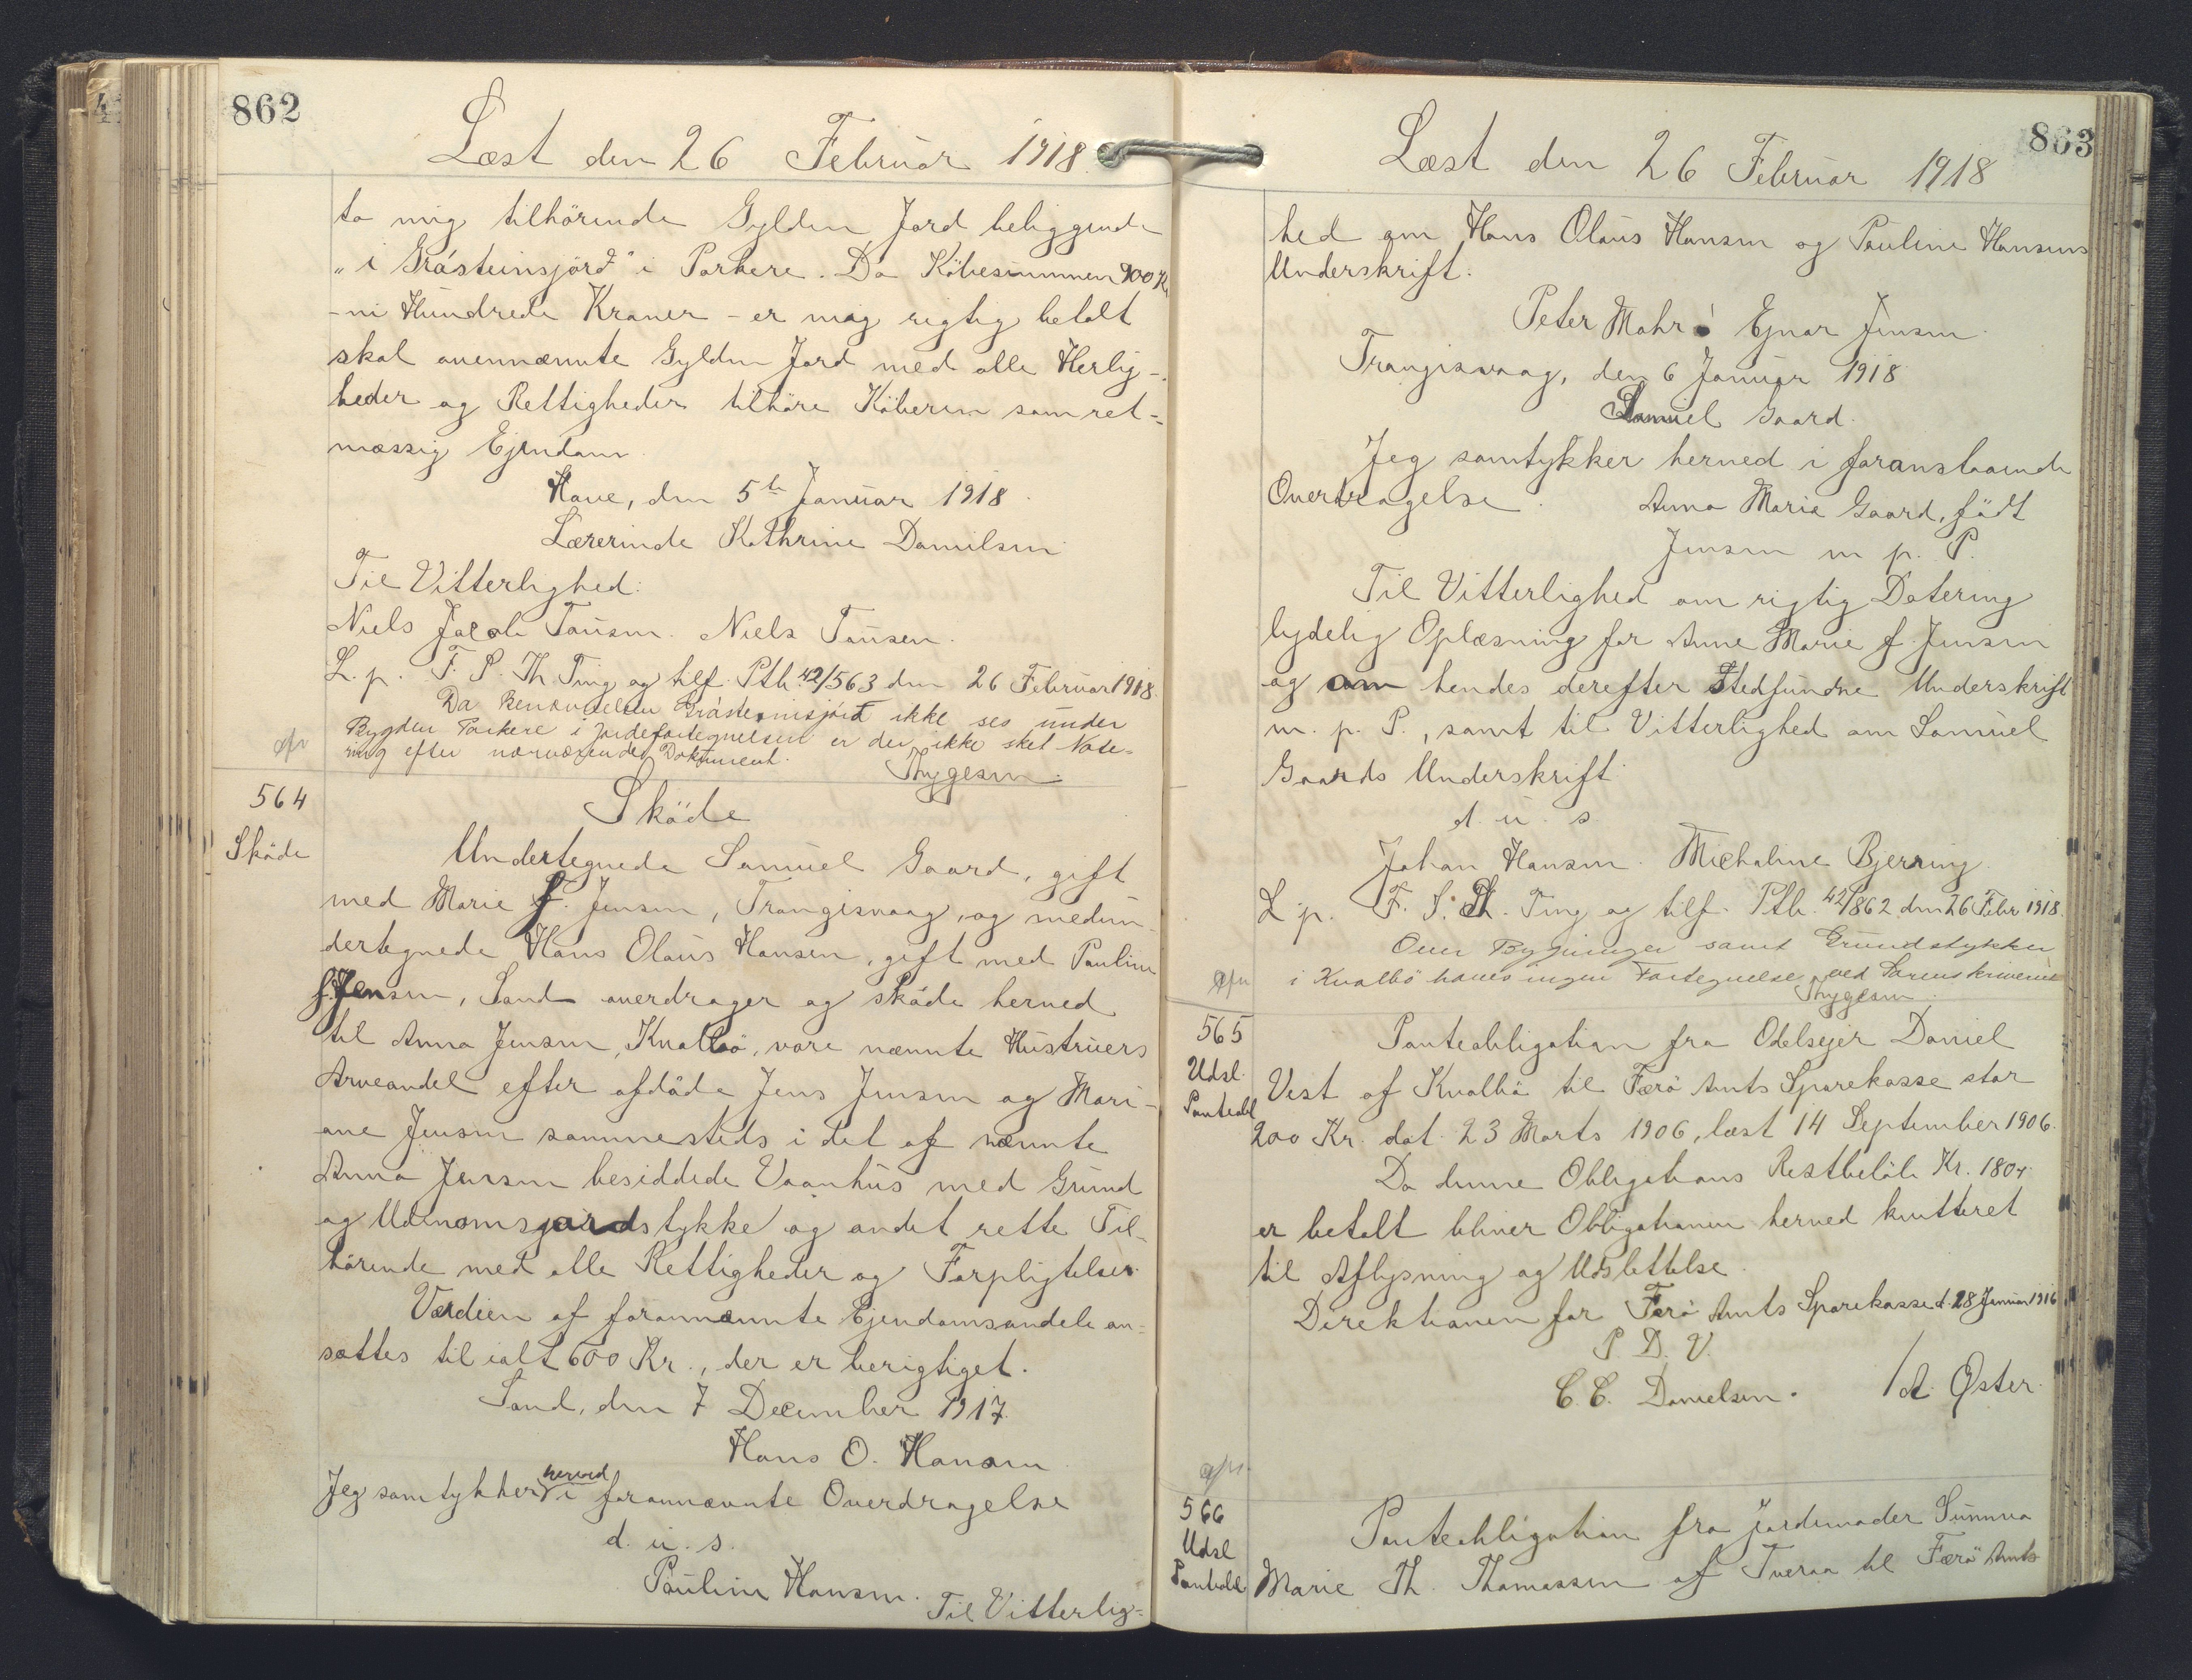 862
Læst den 26 Februar 1918.
to mig tilhörende Gylden Jord beliggende
"i Grásteinsjörd" i Porkere. Da Köbesummen 900 Kr
- ni Hundrede Kroner - er mig rigtig betalt
skal ovennævnte Gylden Jord med alle Herlig-
heder og Rettigheder tilhöre Köberen som ret-
mæssig Ejendom.
Hove, den 5te Januar 1918.
Lærerinde Kathrine Danielsen
Til Vitterlighed:
Niels Jacob Tausen. Niels Tausen.
L. p. F. S. Th. Ting og tilf. Ptb. 42/563 den 26 Februar 1918.
Da Benævnelsen Grásteinsjörd ikke ses under
Bygden Porkere i Jordefortegnelsen er der ikke sket Note-
ring efter nærværende Dokument.
Thygesen.
564
Sköde
Sköde
Undertegnede Samuel Gaard, gift
med Marie f. Jensen, Trangisvaag, og medun-
dertegnede Hans Olaus Hansen, gift med Pauline
f. Jensen, Sand overdrager og sköde herved
til Anna Jensen, Kvalbö, vore nævnte Hustruers
Arveandel efter afdöde Jens Jensen og Mari-
ane Jensen sammesteds i det af nævnte
Anna Jensen besiddede Vaanhus med Grund
og Udenomsgaardstykke og andet rette Til-
hörende med alle Rettigheder og Forpligtelser.
Værdien af forannævnte Ejendomsandele an-
sættes til ialt 600 Kr., der er berigtiget.
Sand, den 7 December 1917.
Hans O. Hansen
Jeg samtykker herved i forannævnte Overdragelse
d. u. s.
Pauline Hansen.
Til Vitterlig-
863
Læst den 26 Februar 1918
hed om Hans Olaus Hansen og Pauline Hansens
Underskrift.
Peter Mohr Ejnar Jensen.
Trangisvaag, den 6 Januar 1918
Samuel Gaard.
Jeg samtykker herved i foranstaaende
Overdragelse.
Anna Marie Gaard, födt
Jensen m. p. P.
Til Vitterlighed om rigtig Datering
lydelig Oplæsning for Anne Marie f. Jensen
og om hendes derefter stedfundne Underskrift
m. p. P., samt til Vitterlighed om Samuel
Gaards Underskrift
d. u. s.
Johan Hansen. Michaline Bjerring.
L. p. F. S. Th. Ting og tilf. Ptb. 42/862 den 26 Febr 1918.
Over Bygninger samt Grundstykker
i Kvalbö haves ingen Fortegnelse ved Sorenskriveriet
Thygesen.
565
Udsl.
Panteobl
Panteobligation fra Odelsejer Daniel
Vest af Kvalbö til Færö Amts Sparekasse stor
200 Kr. dat. 23 Marts 1906, læst 14 September 1906.
Da denne Obligations Restbelöb Kr. 180 4.
er betalt bliver Obligationen herved kvitteret
til Aflysning og Udslettelse.
Direktionen for Færö Amts Sparekasse d. 28 Januar 1916
P. D. V.
C. C. Danielsen. / A. Øster.
566
Udsl
Panteobl
Panteobligation fra Jordemoder Sunnva
Marie Th. Thomassen af Tveraa til Færö Amts